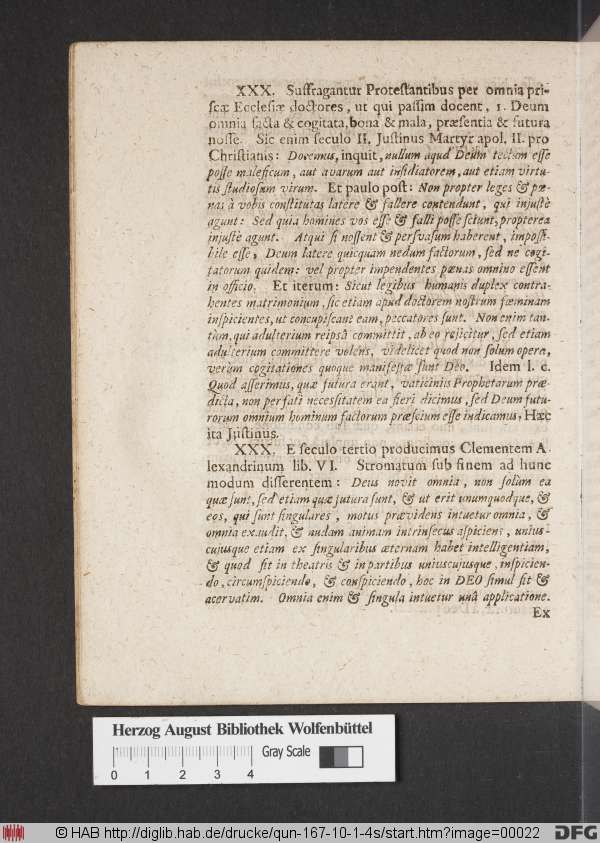 XXX. Suffragantur Protestantibus per omnia pri-
scæ Ecclesiæ doctores, ut qui passim docent, 1. Deum
omnia facta & cogitata, bona & mala, præsentia & futura
nosse. Sic enim seculo II. Justinus Martyr apol. II. pro
Christianis: Docemus, inquit, nullum apud Deum tectum esse
posse maleficum, aut avarum aut insidiatorem, aut etiam virtu-
tis studiosum virum. Et paulo post: Non propter leges & pœ-
nas à vobis constitutas latere & fallere contendunt, qui injustè
agunt: Sed quia homines vos esse & falli posse sciunt, propterea
injustè agunt. Atqui si nossent & persvasum haberent, impossi-
bile esse, Deum latere quicquam nedum factorum, sed ne cogi-
tatorum quidem: vel propter impendentes pœnas omnino essent
in officio. Et iterum: Sicut legibus humanis duplex contra-
hentes matrimonium, sic etiam apud doctorem nostrum fœminam
inspicientes, ut concupiscant eam, peccatores sunt. Non enim tan-
tum, qui adulterium reipsâ committit, ab eo rejicitur, sed etiam
adulterium committere volens, videlicet quod non solum opera,
verùm cogitationes quoque manifestæ sunt Deo. Idem l. c.
Quod asserimus, quæ futura erant, vaticiniis Prophetarum præ-
dicta, non per fati necessitatem ea fieri dicimus, sed Deum futu-
rorum omnium hominum factorum præscium esse indicamus, Hæc
ita Justinus.
XXX. E seculo tertio producimus Clementem A-
lexandrinum lib. VI. Stromatum sub finem ad hunc
modum disserentem: Deus novit omnia, non solum ea
quæ sunt, sed etiam quæ futura sunt, & ut erit unumquodque, &
eos, qui sunt singulares, motus prævidens intuetur omnia, &
omnia exaudit, & nudam animam intrinsecus aspiciens, unius-
cujusque etiam ex singularibus æternam habet intelligentiam,
& quod fit in theatris & in partibus uniuscujusque, inspicien-
do, circumspiciendo, & conspiciendo, hoc in DEO simul fit &
acervatim. Omnia enim & singula intuetur unâ applicatione.
Ex
Herzog August Bibliothek Wolfenbüttel
Gray Scale
0 1 2 3 4
© HAB http://diglib.hab.de/drucke/qun-167-10-1-4s/start.htm?image=00022
DFG